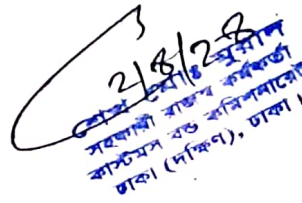 ২/৪/২৪
শেখ মোঃ
সহকারী রাজস্ব কর্মকর্তা
কাস্টমস বন্ড কমিশনারেট
ঢাকা (দক্ষিণ), ঢাকা।